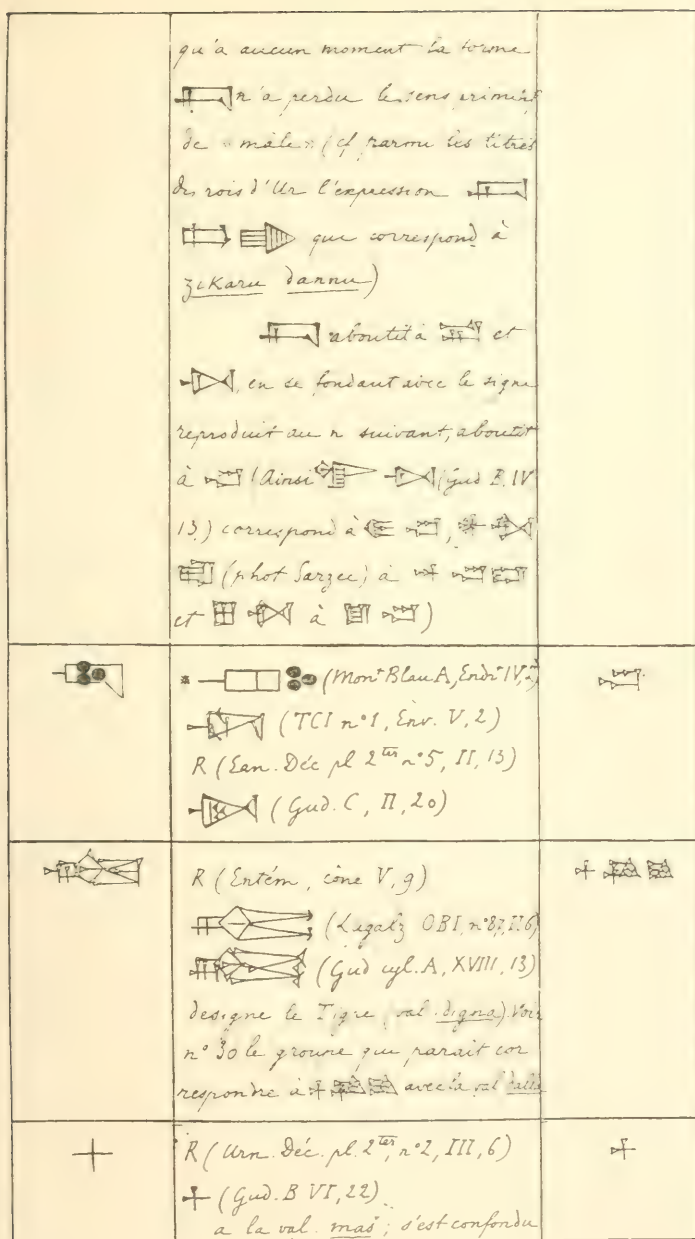 qu'à aucun moment la forme
n'a perdu le sens primitif
de "mâle" (cf parmi les titres
des rois d'Ur l'expression
qui correspond à
zikaru dannu)
aboutit à et
en se fondant avec le signe
reproduit au n suivant, aboutit
à (Ainsi (Gud B. IV
13.) correspond à ,
(phot Sarzec) à
et à )
* (Mont Blau A, Endr IV, 2)
(TCI n° 1, Env. V, 2)
R (Ean. Déc pl 2ter n° 5, II, 13)
(Gud. C, II, 20)
R (Entém, cône V, 9)
(Legalz OBI, n° 87, II 6)
(Gud cyl. A, XVIII, 13)
désigne le Tigre, val. digna). Voir
n° 30 le groupe qui paraît cor
respondre à avec la val dalla
R (Urn. Déc. pl. 2ter, n° 2, III, 6)
(Gud. B VI, 22)
a la val. maš ; s'est confondu